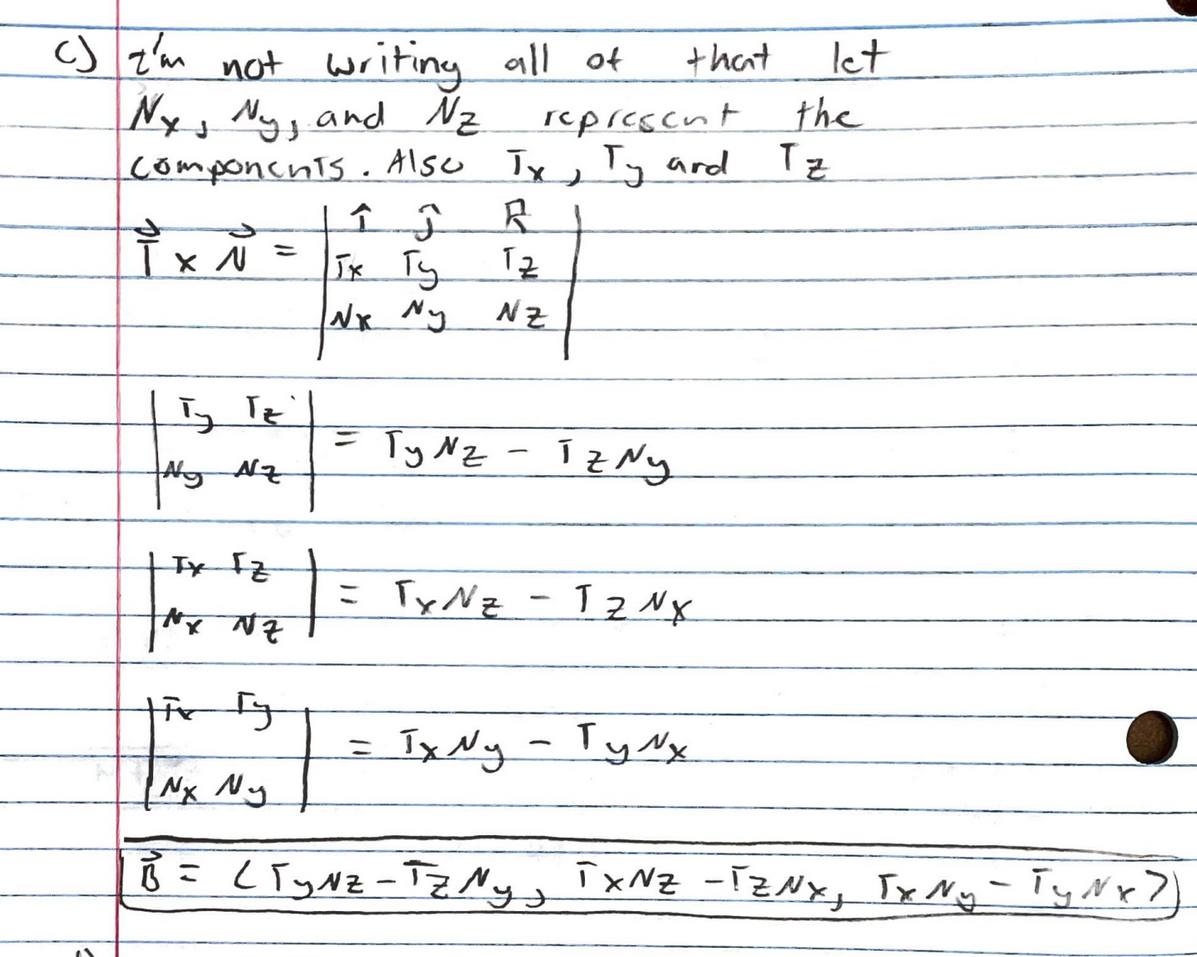 c) I'm not writing all of that let
Nx, Ny, and Nz represent the
components. Also Tx, Ty and Tz
T⃗ x N⃗ = | î ĵ k̂ |
| Tx Ty Tz |
| Nx Ny Nz |
| Ty Tz |
| Ny Nz | = TyNz - TzNy
| Tx Tz |
| Nx Nz | = TxNz - TzNx
| Tx Ty |
| Nx Ny | = TxNy - TyNx
B⃗ = <TyNz - TzNy, TxNz - TzNx, TxNy - TyNx>